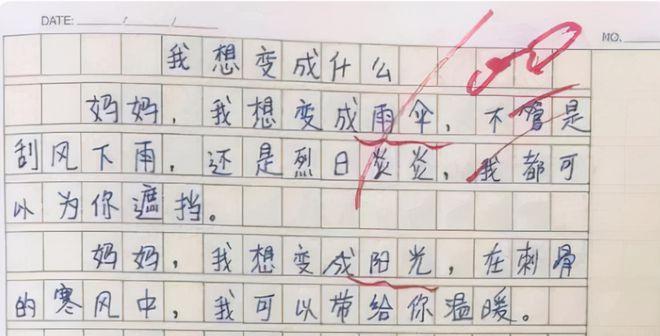 DATE: / /
NO.
我想变成什么
妈妈，我想变成雨伞，不管是
刮风下雨，还是烈日炎炎，我都可
以为你遮挡。
妈妈，我想变成阳光，在刺骨
的寒风中，我可以带给你温暖。